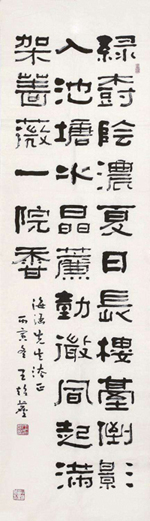 綠樹陰濃夏日長樓臺倒影
入池塘水晶簾動微風起滿
架薔薇一院香
先生法正
丙寅年王